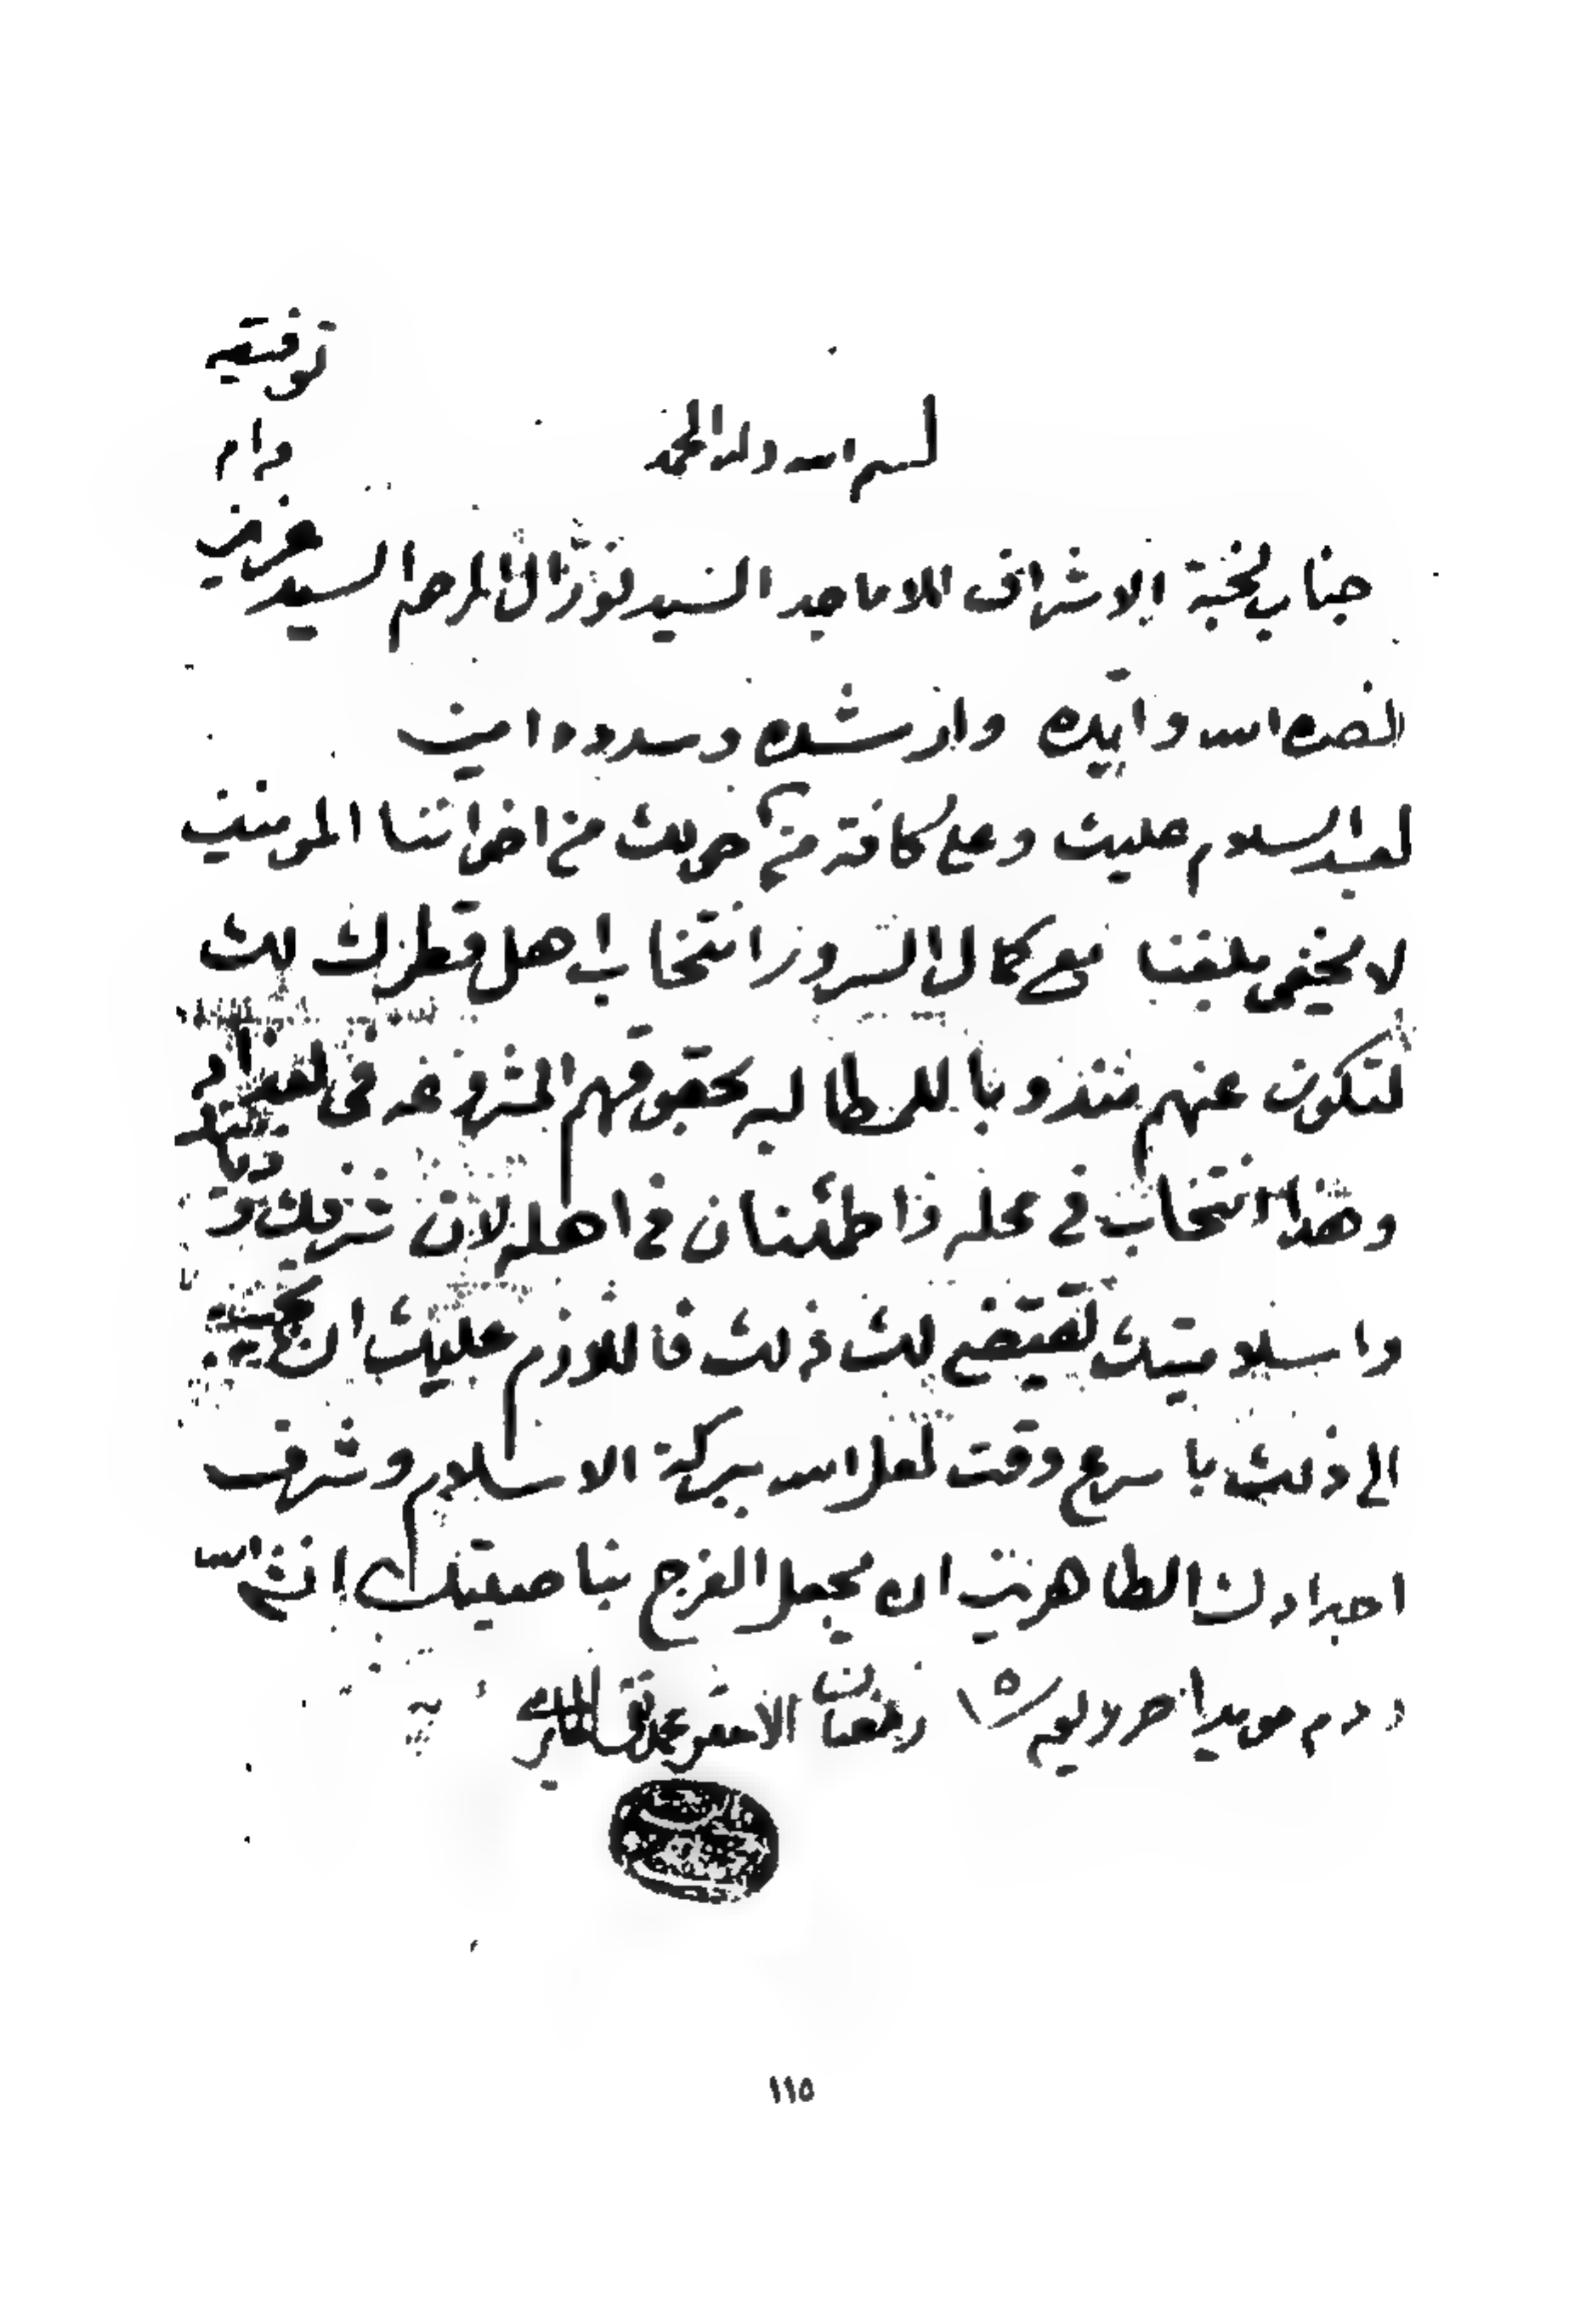 بسم الله وله الحمد
جناب نخبة الاشراف الاماجد السيد نور آل المرحوم السيد عزيز
دام
توفيقه
نصره الله وايده وارشده وسدده امين
بعد السلام عليك وعلى كافة من حولك من اخواننا المومنين
لا يخفى بلغنا مع كمال السرور انتخاب اهل قطرك لك
لتكون عنهم مندوبا للمطالبه بحقوقهم المشروعه في بغداد
وهذا انتخاب في محله واطمئنان في اهله لان شرفك وديانتك
واسلاميتك تقتضي لك ذلك فاللازم عليك ان تجيبهم
الى ذلك باسرع وقت لعل الله ببركة الاسلام وشرف
اجدادك الطاهرين ان يجعل الفرج بناصيتك انشاء الله
ودم مويدا حرر ليوم ١٥ رمضان الاحقر محمد تقي الحائري
١١٥